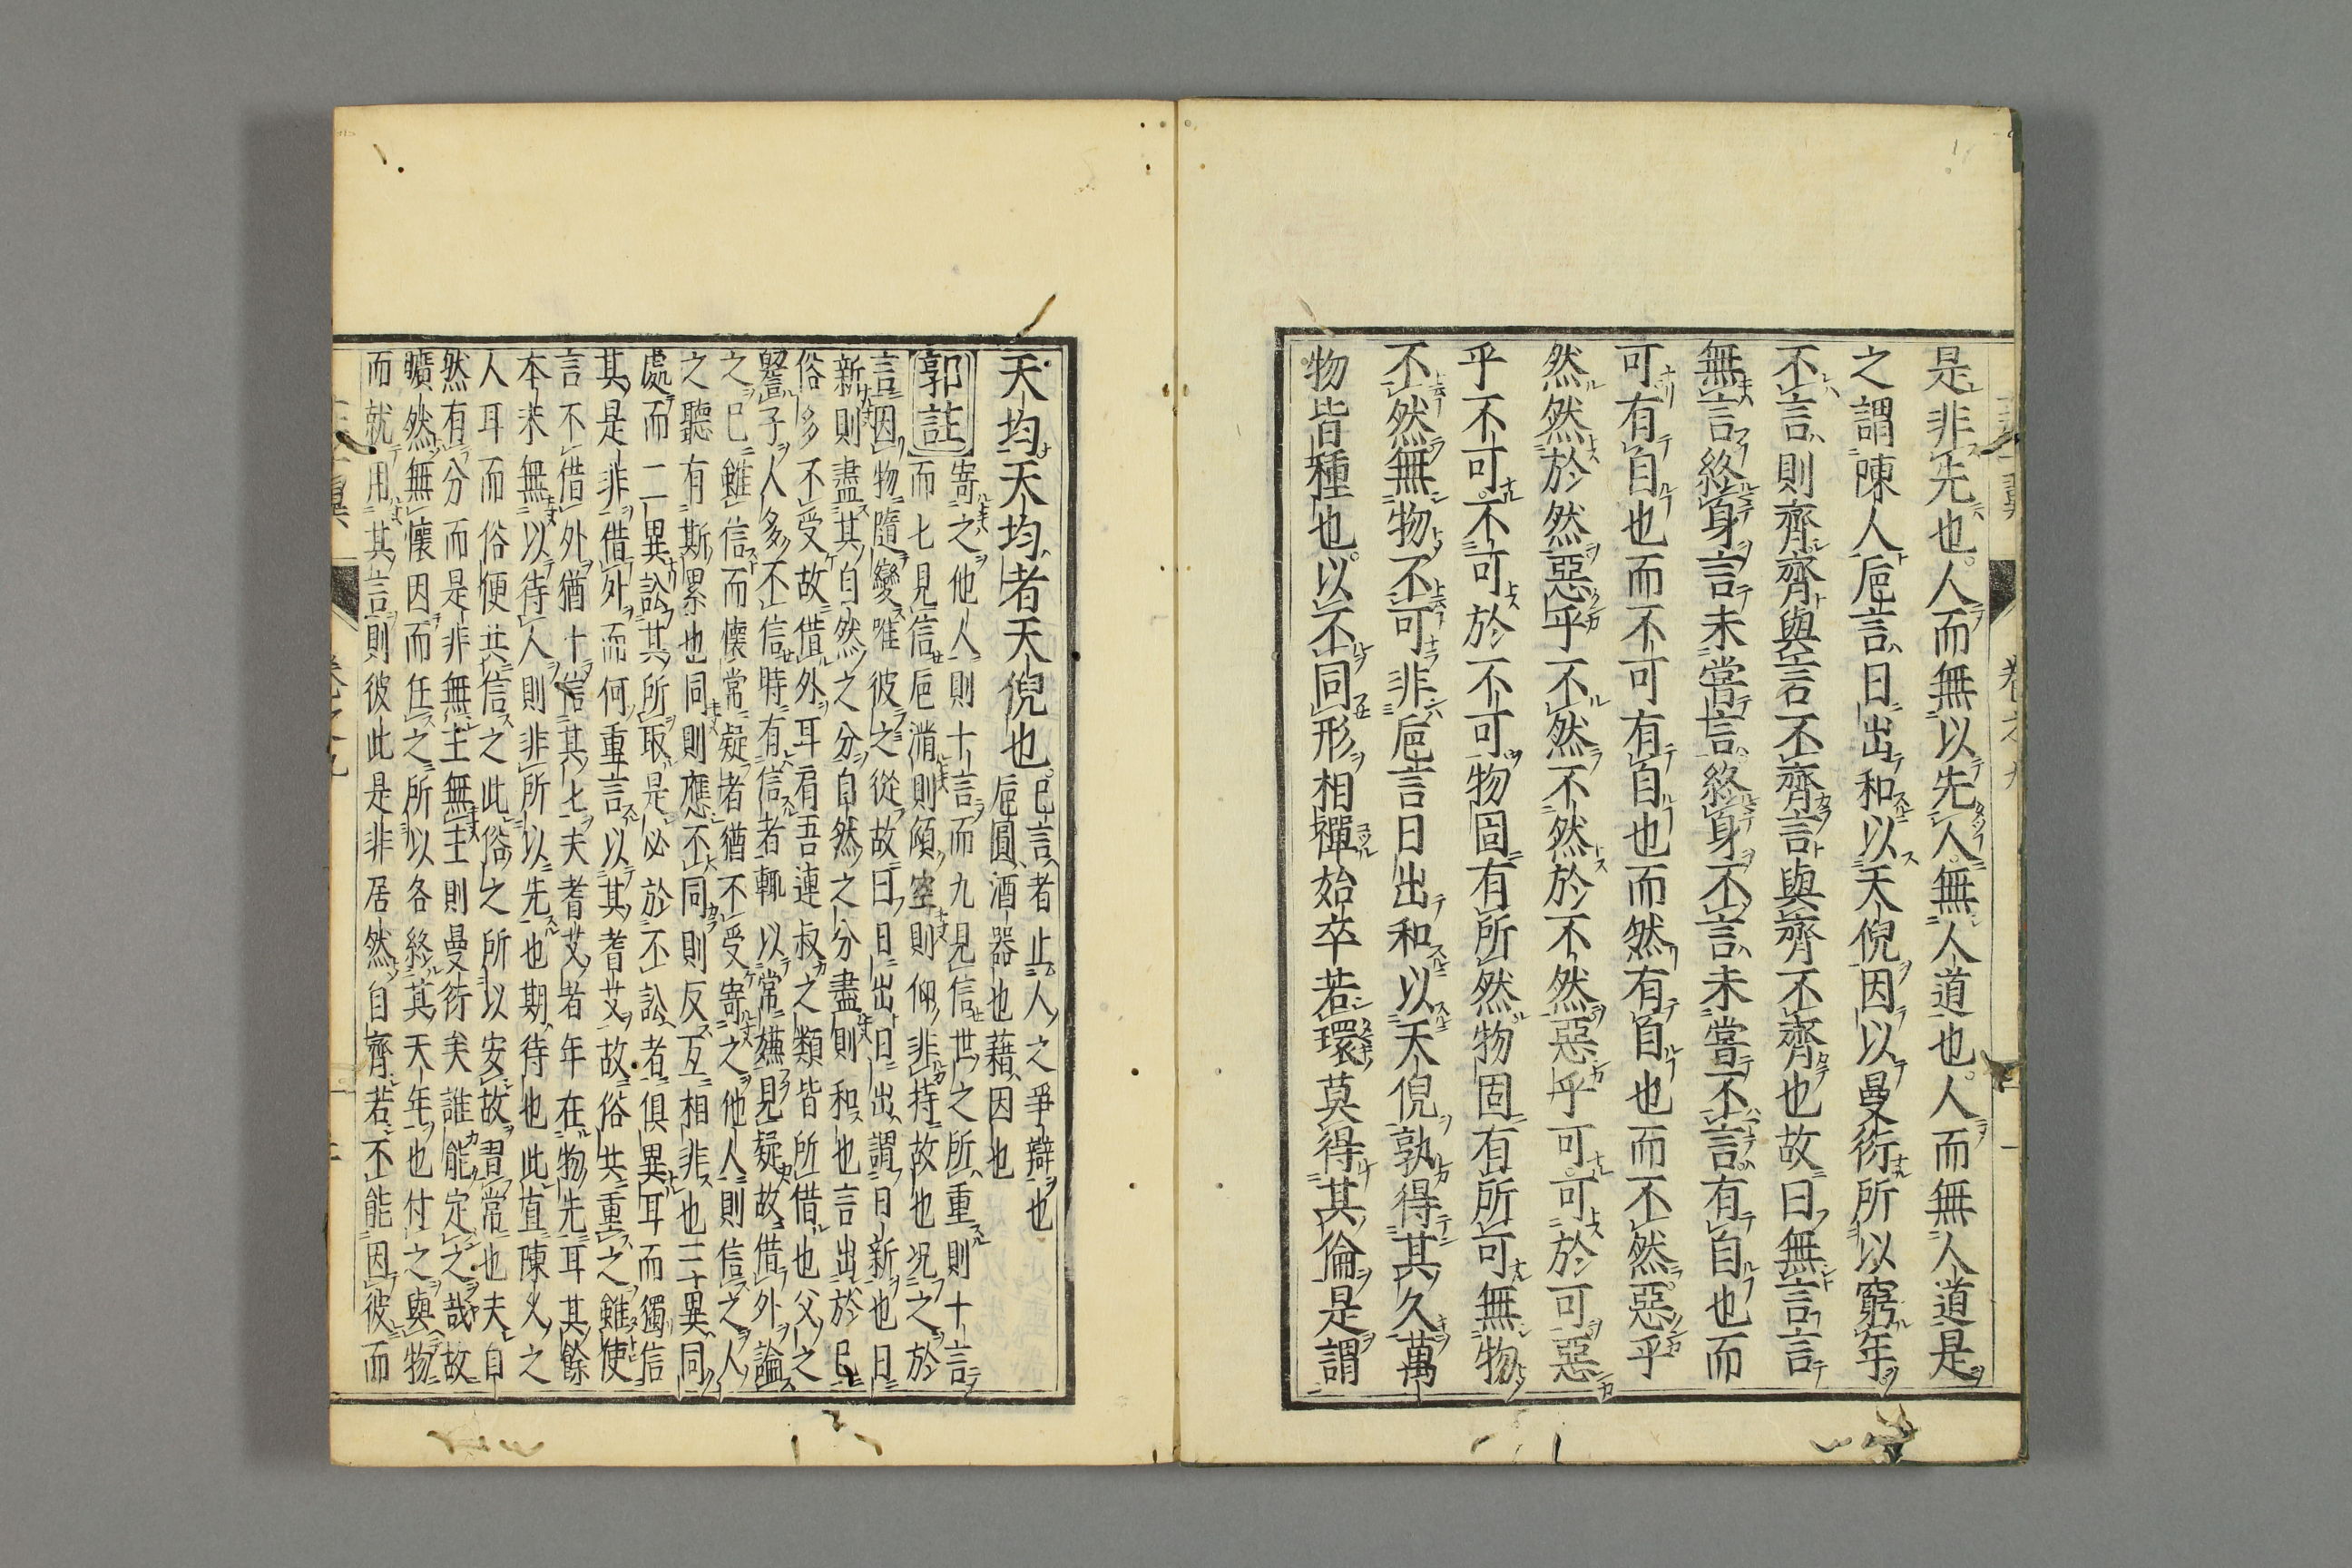 是非先也。人而無以先人。無人道也。人而無人道是
之謂陳人巵言日出和以天倪因以曼衍所以窮年。
不言則齊齊與言不齊言與齊不齊也故曰無言言
無言終身言未嘗言終身不言未嘗不言有自也而
可有自也而不可有自也而然有自也而不然惡乎
然然於然惡乎不然不然於不然惡乎可可於可惡
乎不可不可於不可物固有所然物固有所可無物
不然無物不可非巵言日出和以天倪孰得其久萬
物皆種也以不同形相禪始卒若環莫得其倫是謂
天均天均者天倪也
已言者止人之爭辯也
巵圓酒器也藉因也
郭註
寄之他人則十言而九見信世之所重則十言
而七見信巵滿則傾空則仰非持故也况之於
言因物隨變唯彼之從故曰日出日出謂日新也日
新則盡其自然之分自然之分盡則和也言出於己
俗多不受故借外耳肩吾連叔之類皆所借也父之
譽子人多不信時有信者輒以常嫌見疑故借外論
之已雖信而懷常疑者猶不受寄之他人則信之人
之聽有斯累也同則應不同則反互相非也三異同
處而二異訟其所取是必於不訟者俱異耳而獨信
其是非借外而何重言以其耆艾故俗共重之雖使
言不借外猶十信其七夫耆艾者年在物先耳其餘
本末無以待人則非所以先也期待也此直陳久之
人耳而俗便共信之此俗之所以安故習常也夫自
然有分而是非無主無主則曼衍矣誰能定之哉故
曠然無懷因而任之所以各終其天年也付之與物
而就用其言則彼此是非居然自齊若不能因彼而